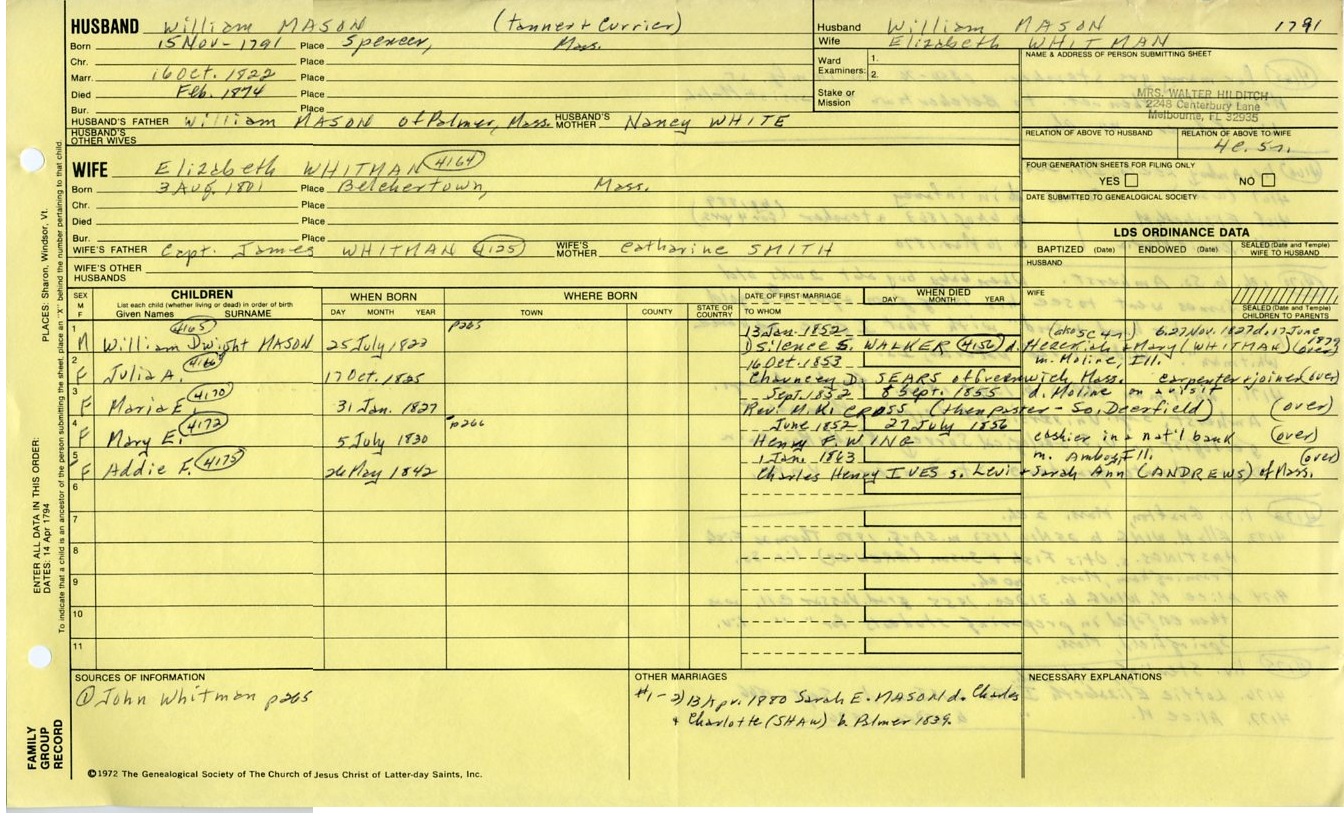 HUSBAND William MASON (Tanner & Currier)
Born 15 Nov - 1791 Place Spencer, Mass.
Chr. Place
Marr. 16 Oct. 1822 Place
Died Feb. 1874 Place
Bur. Place
HUSBAND'S FATHER William MASON of Palmer, Mass. HUSBAND'S MOTHER Nancy WHITE
HUSBAND'S OTHER WIVES
Husband William MASON 1791
Wife Elizabeth WHITMAN
Ward Examiners: 1.
2.
Stake or Mission
NAME & ADDRESS OF PERSON SUBMITTING SHEET
MRS. WALTER HILDITCH
2248 Canterbury Lane
Melbourne, FL 32935
RELATION OF ABOVE TO HUSBAND RELATION OF ABOVE TO WIFE
4c. 5r.
FOUR GENERATION SHEETS FOR FILING ONLY
YES NO
DATE SUBMITTED TO GENEALOGICAL SOCIETY
WIFE Elizabeth WHITMAN 4164
Born 3 Aug, 1801 Place Belchertown, Mass.
Chr. Place
Died Place
Bur. Place
WIFE'S FATHER Capt. James WHITMAN 4125 WIFE'S MOTHER Catharine SMITH
WIFE'S OTHER HUSBANDS
LDS ORDINANCE DATA
BAPTIZED (Date) ENDOWED (Date) SEALED (Date and Temple) WIFE TO HUSBAND
HUSBAND
WIFE
SEALED (Date and Temple) CHILDREN TO PARENTS
SEX M F
CHILDREN
List each child (whether living or dead) in order of birth
Given Names SURNAME
WHEN BORN
DAY MONTH YEAR
WHERE BORN
TOWN COUNTY STATE OR COUNTRY
DATE OF FIRST MARRIAGE
TO WHOM
WHEN DIED
DAY MONTH YEAR
1 4165 p265 13 Jan. 1852 (also SC 4n) b. 27 Nov. 1827 d. 17 June 1879
M William Dwight MASON 25 July 1823 1) Silence S. WALKER 4156 d. Hezekiah & Mary (WHITMAN) (over)
2 4166 16 Oct. 1853 m. Moline, Ill.
F Julia A. 17 Oct. 1825 Chauncey D. SEARS of Greenwich, Mass. carpenter & joiner (over)
3 4170 Sept. 1852 8 Sept. 1855 d. Moline on a visit
F Maria E. 31 Jan. 1827 Rev. M.K. CROSS (then pastor - So. Deerfield) (over)
4 4172 p266 June 1852 27 July 1856 cashier in a nat'l bank (over)
F Mary E. 5 July 1830 Henry F. WING
5 4175 1 Jan. 1863 m. Amboy, Ill. (over)
F Addie F. 26 May 1842 Charles Henry IVES s. Levi & Sarah Ann (ANDREWS) of Mass.
6
7
8
9
10
11
SOURCES OF INFORMATION
① John Whitman p265
OTHER MARRIAGES
#1 - 2) 13 Apr. 1880 Sarah E. MASON d. Charles
& Charlotte (SHAW) b. Palmer 1839.
NECESSARY EXPLANATIONS
©1972 The Genealogical Society of The Church of Jesus Christ of Latter-day Saints, Inc.
FAMILY GROUP RECORD
ENTER ALL DATA IN THIS ORDER:
DATES: 14 Apr 1794
PLACES: Sharon, Windsor, Vt.
To indicate that a child is an ancestor of the person submitting the sheet, place an "X" behind the number pertaining to that child.